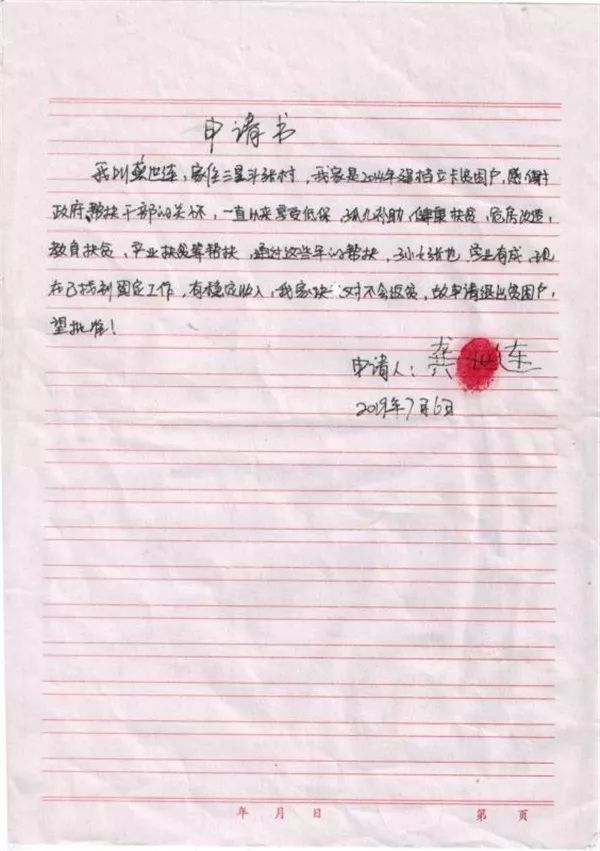 申请书
我叫龚世连,家住三星斗张村,我家是2014年建档立卡贫困户,感谢
政府帮扶干部的关怀,一直以来享受低保、孤儿补助、健康扶贫、危房改造、
教育扶贫、产业扶贫等帮扶,通过这些年的帮扶,孙女张也学业有成,现
在已找到固定工作,有稳定收入,我家决对不会返贫,故申请退出贫困户,
望批准!
申请人:龚世连
2019年7月6日
年 月 日 第 页